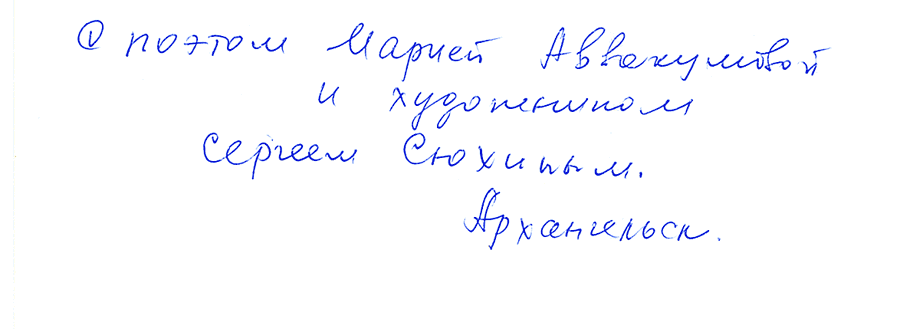 С поэтом Марией Аввакумовой
и художником
Сергеем Сюхиным.
Архангельск.